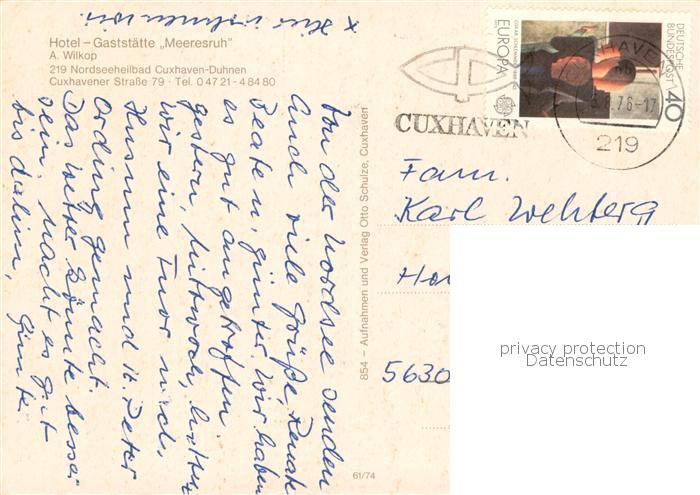 x Hier wohnen wir.
Hotel – Gaststätte „Meeresruh"
A. Wilkop
219 Nordseeheilbad Cuxhaven-Duhnen
Cuxhavener Straße 79 · Tel. 0 47 21 - 4 84 80
Von der Nordsee senden
Auch viele Grüße, Renate
Beate u. Günter. Wir haben
es gut angetroffen
gestern, Mittwoch, hatten
wir eine Tour nach
Husum und St. Peter
Ording gemacht.
Das Wetter könnte besser
sein. Macht es gut
bis dahin,
Günter
854 - Aufnahmen und Verlag Otto Schulze, Cuxhaven
61/74
CUXHAVEN
EUROPA
DEUTSCHE
BUNDESPOST
40
HAVEN
.76-17
219
Fam.
Karl Wehberg
5630
privacy protection
Datenschutz